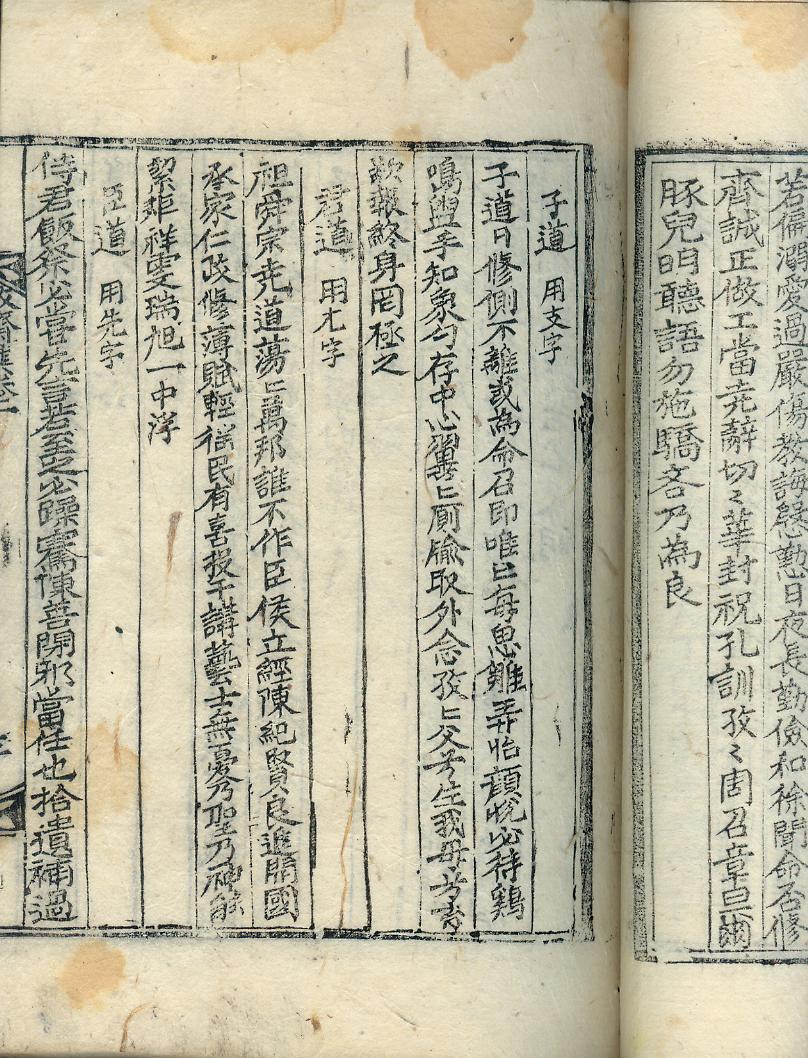 若偏溺愛過嚴傷教誨慇懃日夜長勤儉和徐聞命否修
齊誠正做工當尭辭切〻華封祝孔訓孜〻周召章旦爾
豚兒明聽語勿施驕吝乃為良
子道 用支字
子道日修側不離或為命召即唯〻毎思雛弄怡顔悅必待鷄
鳴盥手知象勺存中心翼〻厠牏取外念孜〻父兮生我母兮育
欲報終身罔極之
君道 用尤字
祖舜宗尭道蕩〻萬邦誰不作臣侯立經陳紀賢良進開國
承家仁政修薄賦輕徭民有喜投干講藝士無憂乃聖乃神能
絜矩祥雯瑞旭一中浮
臣道 用先字
侍君飯祭必當先言若至之必躁騫陳善閉邪當任也拾遺補過